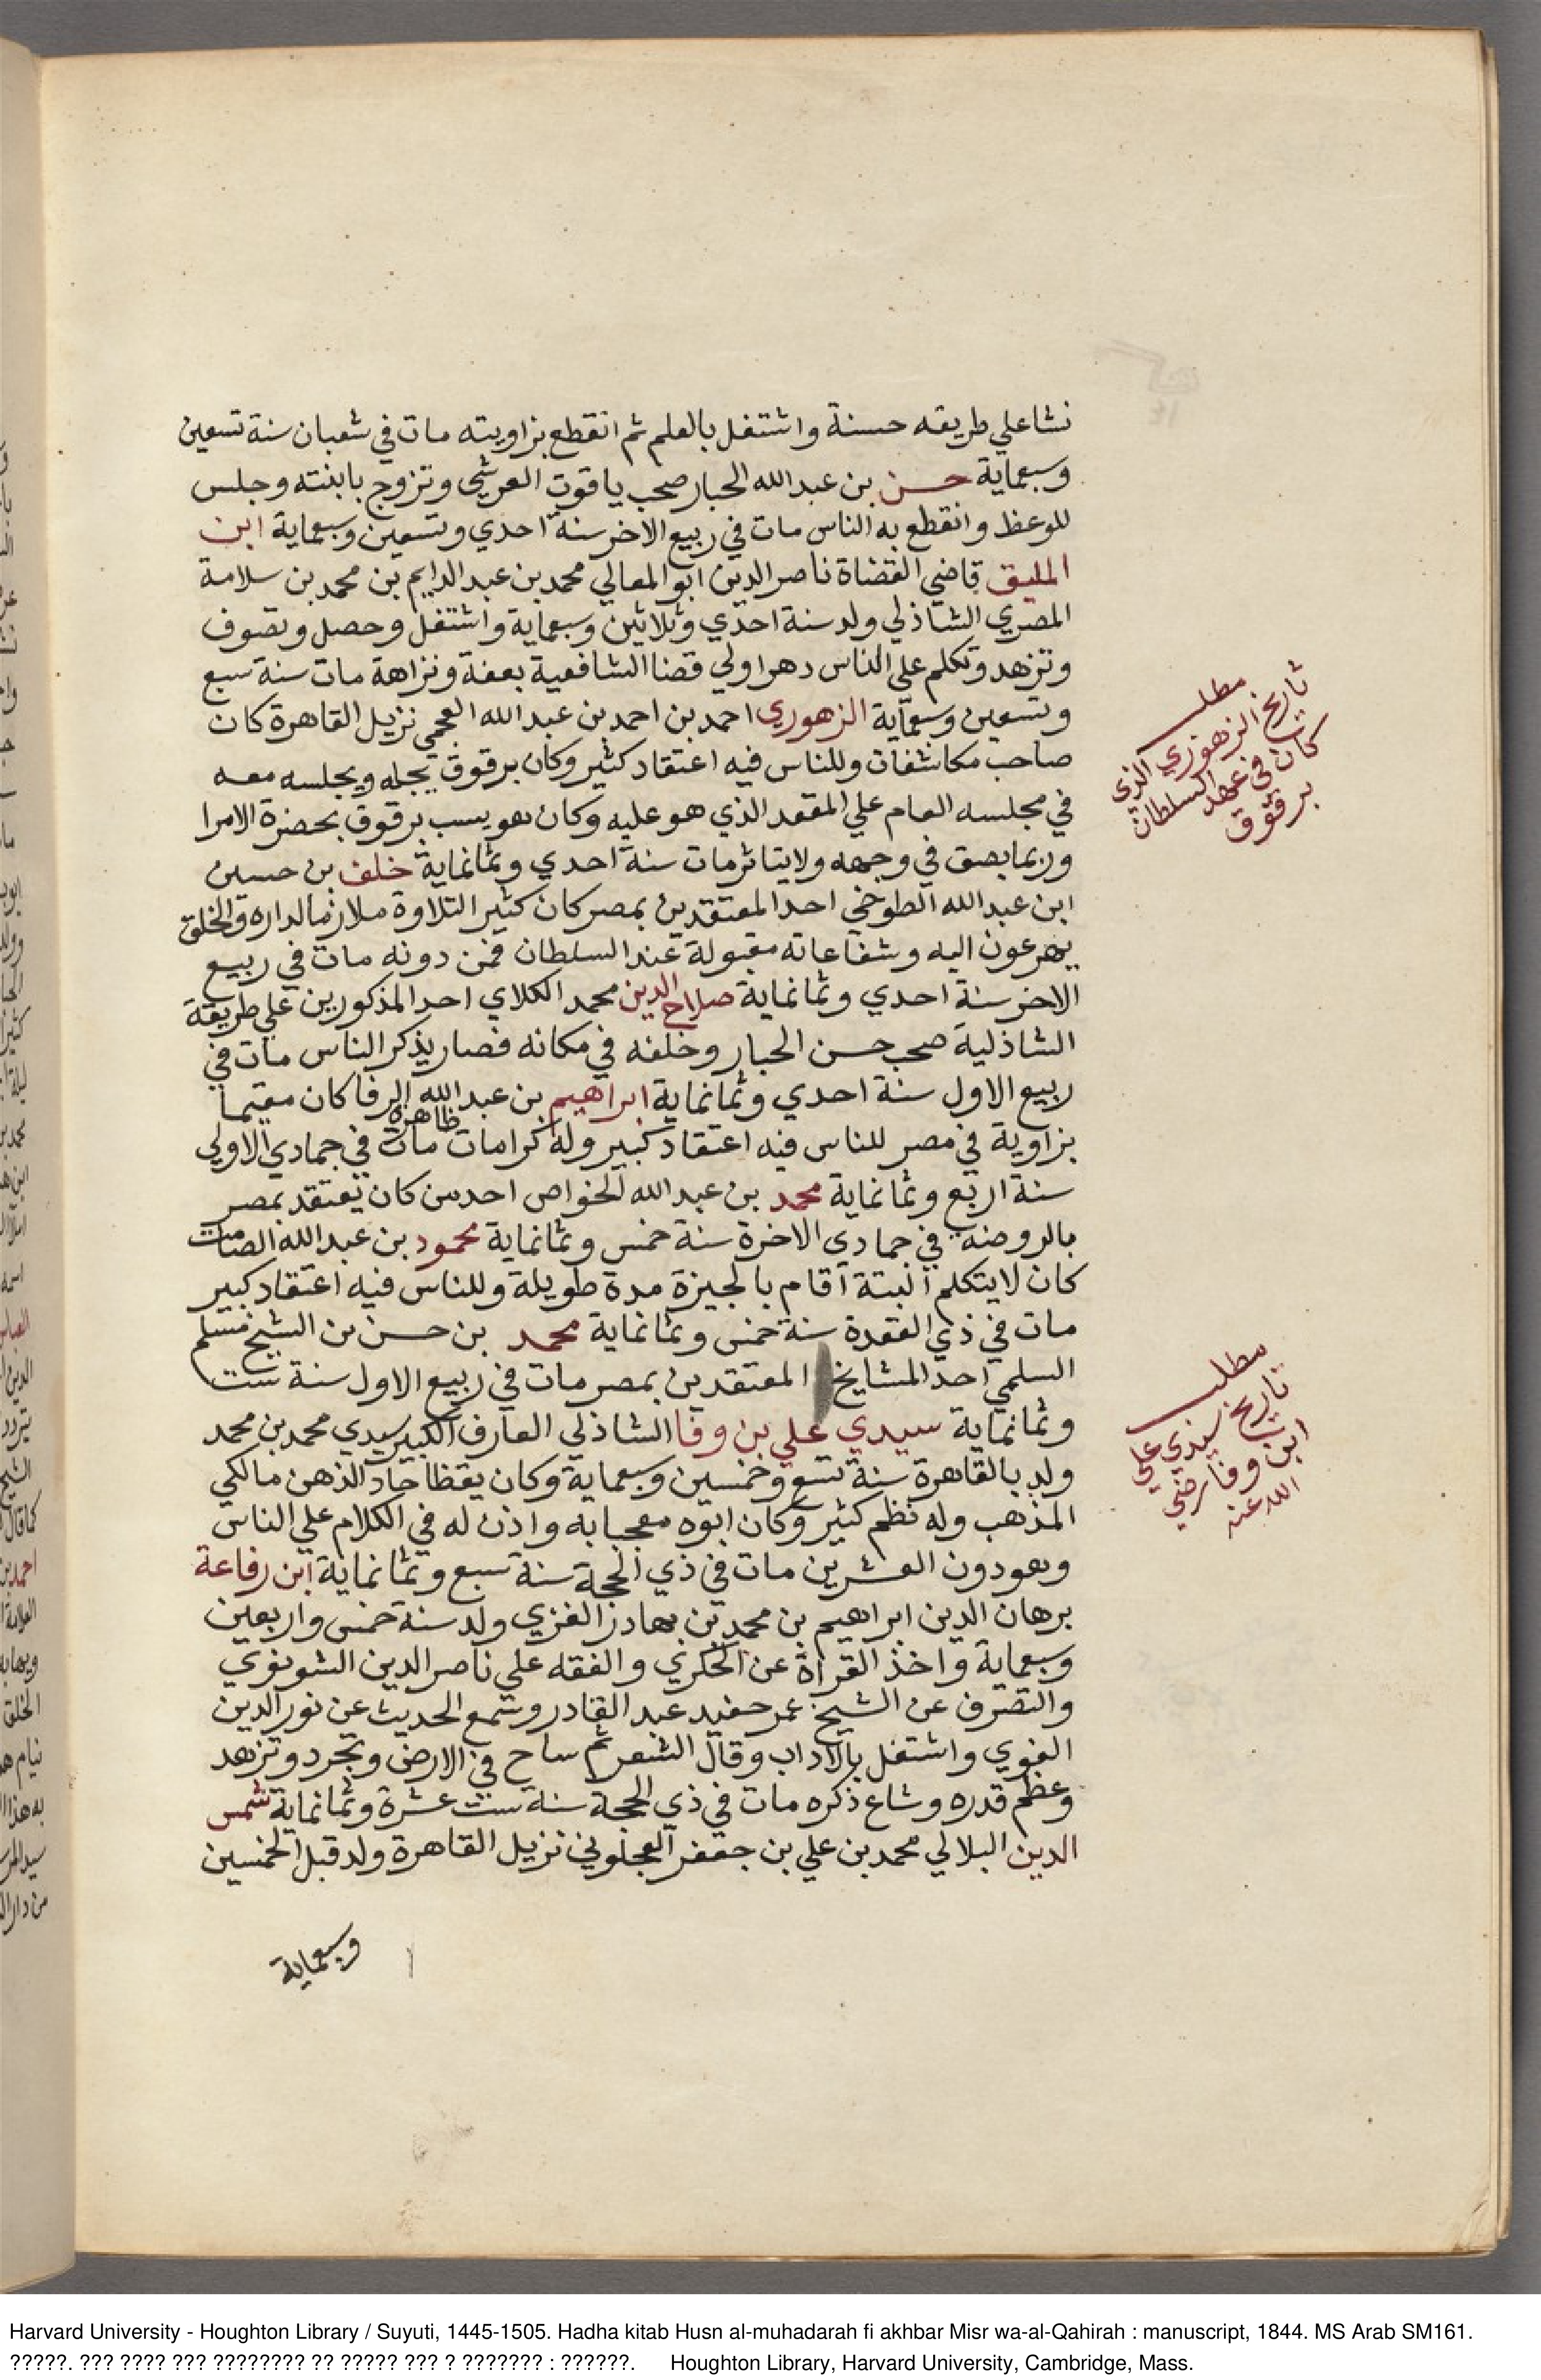 نشا علي طريقه حسنة واشتغل بالعلم ثم انقطع بزاويته مات في شعبان سنة تسعين
وسبعماية حسن بن عبد الله الحبار صحب ياقوت العرشي وتزوج بابنته وجلس
للوعظ وانقطع به الناس مات في ربيع الاخر سنة احدي وتسعين وسبعماية ابن
المليق قاضي القضاة ناصر الدين ابو المعالي محمد بن عبد الدايم بن محمد بن سلامة
المصري الشاذلي ولد سنة احدي وثلاثين وسبعماية واشتغل وحصل وتصوف
وتزهد وتكلم علي الناس دهرا ولي قضا الشافعية بعفة ونزاهة مات سنة سبع
وتسعين وسبعماية الزهوري احمد بن احمد بن عبد الله العجمي نزيل القاهرة كان
صاحب مكاشفات وللناس فيه اعتقاد كثير وكان برقوق يجله ويجلسه معه
في مجلسه العام علي المقعد الذي هو عليه وكان هو يسب برقوق بحضرة الامرا
وربما بصق في وجهه ولا يتاثر مات سنة احدي وثمانماية خلف بن حسين
ابن عبد الله الطوخي احد المعتقدين بمصر كان كثير التلاوة ملازما لداره والخلق
يهرعون اليه وشفاعاته مقبولة عند السلطان فمن دونه مات في ربيع
الاخر سنة احدي وثمانماية صلاح الدين محمد الكلاي احد المذكورين علي طريقة
الشاذلية صحب حسن الحبار وخلفه في مكانه فصار يذكر الناس مات في
ربيع الاول سنة احدي وثمانماية ابراهيم بن عبد الله الرفا كان مقيما
بزاوية في مصر للناس فيه اعتقاد كبير وله كرامات ظاهرة مات في جمادي الاولي
سنة اربع وثمانماية محمد بن عبد الله الخواص احد من كان يعتقد بمصر
بالروضة في جمادي الاخرة سنة خمس وثمانماية محمود بن عبد الله الصامت
كان لا يتكلم البتة اقام بالجيزة مدة طويلة وللناس فيه اعتقاد كبير
مات في ذي القعدة سنة خمس وثمانماية محمد بن حسن بن الشيخ مسلم
السلمي احد المشايخ المعتقدين بمصر مات في ربيع الاول سنة ست
وثمانماية سيدي علي بن وفا الشاذلي العارف الكبير سيدي محمد بن محمد
ولد بالقاهرة سنة تسع وخمسين وسبعماية وكان يقظا حاد الذهن مالكي
المذهب وله نظم كثير وكان ابوه معجبا به واذن له في الكلام علي الناس
وهو دون العشرين مات في ذي الحجة سنة سبع وثمانماية ابن رفاعة
برهان الدين ابراهيم بن محمد بن بهادر الغزي ولد سنة خمس واربعين
وسبعماية واخذ القراة عن الحكري والفقه علي ناصر الدين الشونوي
والتصرف عن الشيخ عمر حفيد عبد القادر وسمع الحديث عن نور الدين
الغوي واشتغل بالاداب وقال الشعر ثم ساح في الارض وتجرد وتزهد
وعظم قدره وشاع ذكره مات في ذي الحجة سنة ست عشرة وثمانماية شمس
الدين البلالي محمد بن علي بن جعفر العجلوني نزيل القاهرة ولد قبل الخمسين
وسبعماية
مطلب
تاريخ الزهوري الذي
كان في عهد السلطان
برقوق
مطلب
تاريخ سيدي علي
ابن وفا رضي
الله عنه
Harvard University - Houghton Library / Suyuti, 1445-1505. Hadha kitab Husn al-muhadarah fi akhbar Misr wa-al-Qahirah : manuscript, 1844. MS Arab SM161.
?????. ??? ???? ??? ???????? ?? ????? ??? ? ??????? : ??????. Houghton Library, Harvard University, Cambridge, Mass.